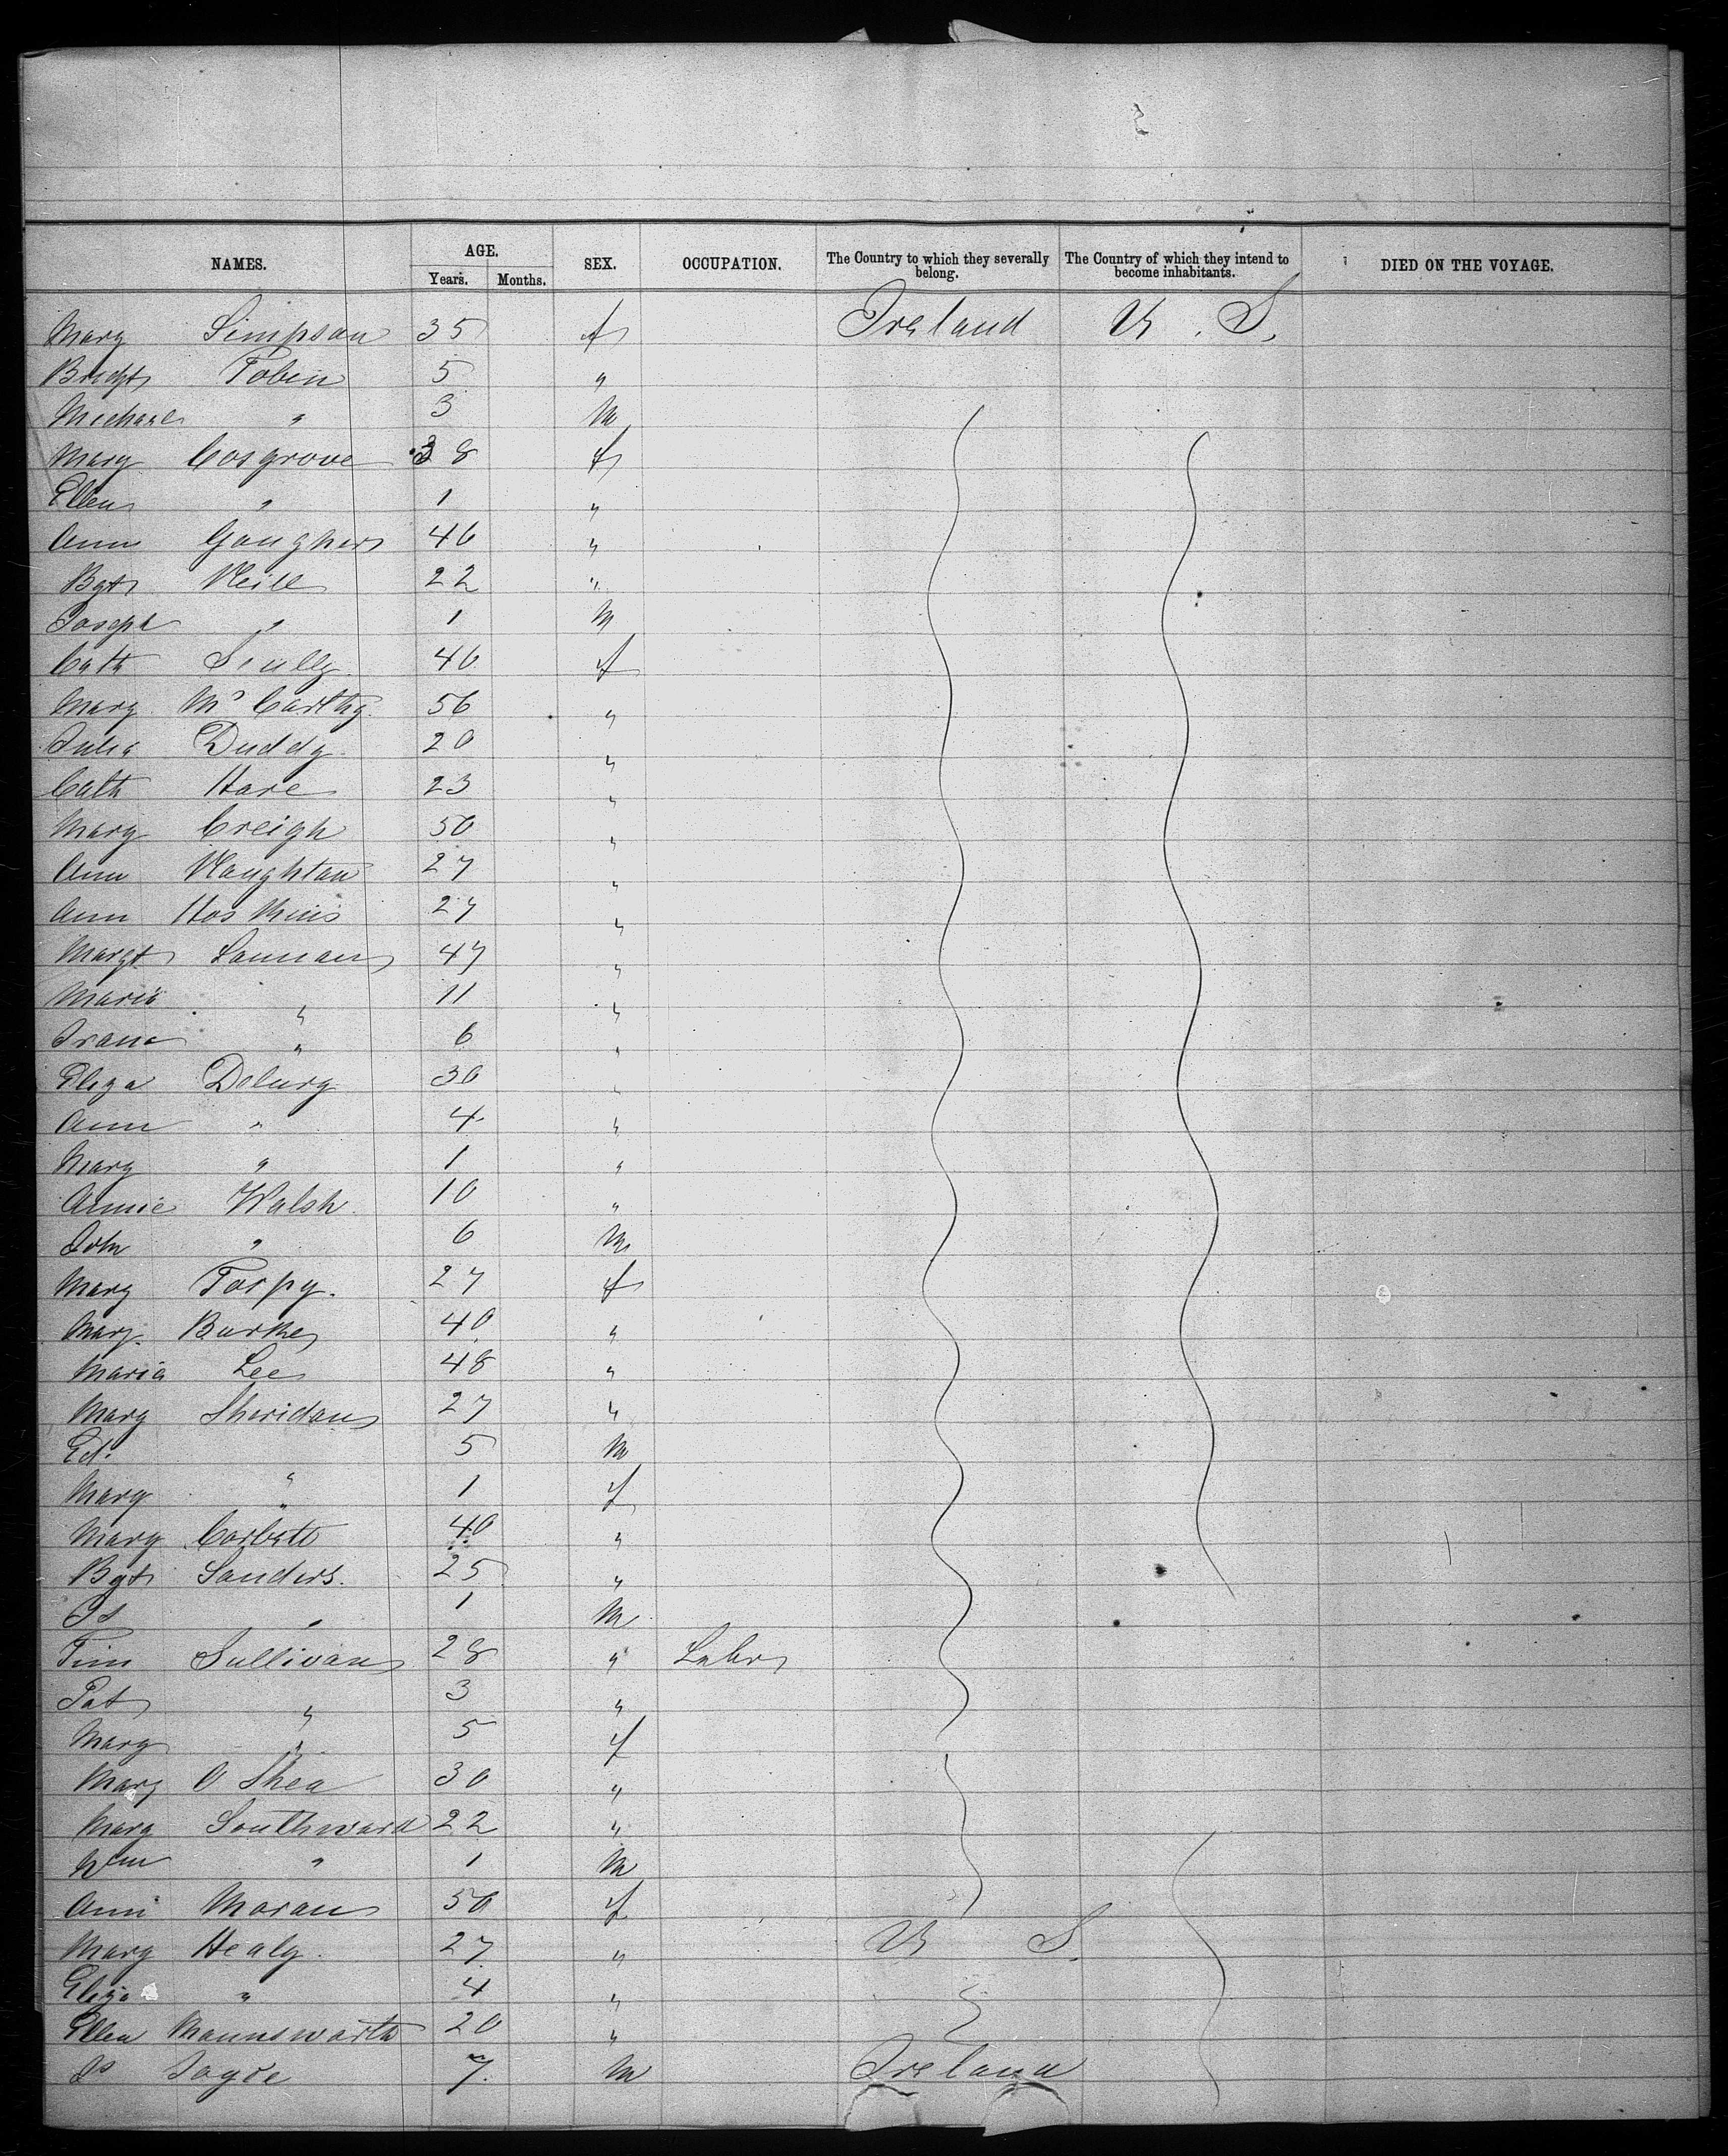 NAMES. AGE. Years. Months. SEX. OCCUPATION. The Country to which they severally belong. The Country of which they intend to become inhabitants. DIED ON THE VOYAGE.
Mary Simpson 35 f Ireland U. S.
Bridgt Tobin 5 "
Michael " 3 M
Mary Cosgrove 38 f
Ellen " 1 "
Ann Gaughan 40 "
Bgt Neill 22 "
Joseph " 1 M
Cath Scully 40 f
Mary McCarthy 50 "
Julia Duddy 20 "
Cath Hare 23 "
Mary Creigh 50 "
Ann Naughton 27 "
Ann Hoskins 27 "
Margt Lannan 47 "
Maria " 11 "
Franc " 6 "
Eliza Delury 30 "
Ann " 4 "
Mary " 1 "
Annie Walsh 10 "
John " 6 M
Mary Torpy 27 f
Mary Burke 40 "
Maria Lee 48 "
Mary Sheridan 27 "
Ed. " 5 M
Mary " 1 f
Mary Corbett 40 "
Bgt Sanders 25 "
Js " 1 M
Tim Sullivan 28 " Labr
Pat " 3 "
Mary " 5 f
Mary O Shea 30 "
Mary Southward 22 "
Wm " 1 M
Ann Moran 50 f
Mary Healy 27 " U S.
Eliza " 4 "
Ellen Mannsworth 20 "
Js 7 M Ireland